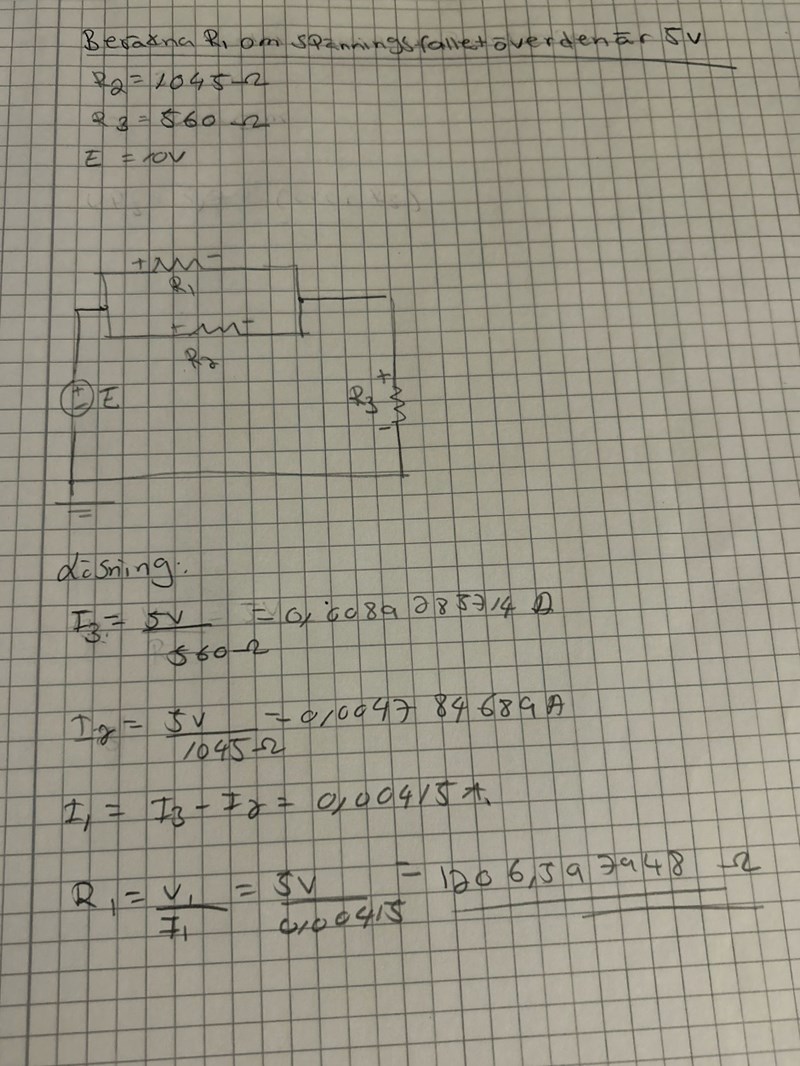 Beräkna R1 om spänningsfallet över den är 5V
R2 = 1045 Ω
R3 = 560 Ω
E = 10V
+ -
R1
+ -
R2
+
E
R3
+
-
Lösning:
I3 = 5V / 560 Ω = 0,0089285714 A
I2 = 5V / 1045 Ω = 0,004784689 A
I1 = I3 - I2 = 0,00415 A.
R1 = V1 / I1 = 5V / 0,00415 = 1206,597948 Ω